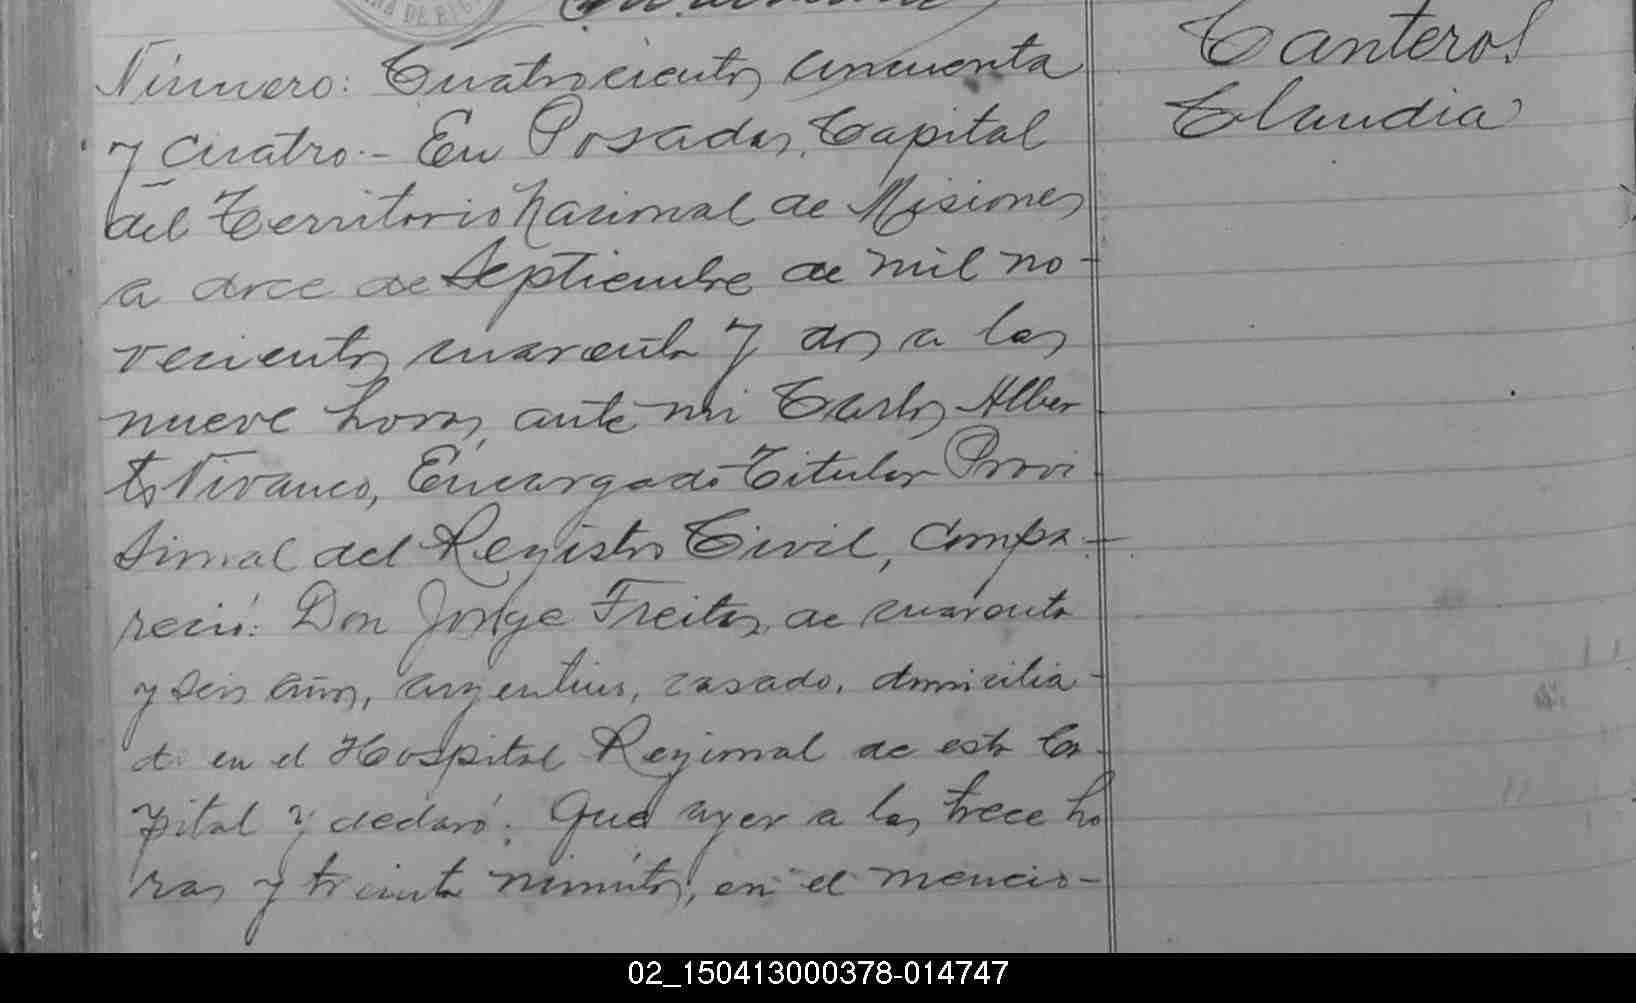 Número: Cuatrocientos cincuenta
y cuatro.- En Posadas, Capital
del Territorio Nacional de Misiones
a doce de Septiembre de mil no-
vecientos cuarenta y dos a las
nueve horas, ante mi Carlos Alber
to Vivanco, Encargado Titular Provi-
sional del Registro Civil, compa-
reció: Don Jorge Freitas, de cuarenta
y seis años, argentino, casado, domicilia-
do en el Hospital Regional de esta Ca-
pital y declaró: Que ayer a las trece ho
ras y treinta minutos, en el mencio-
Canteros
Claudia
02_150413000378-014747